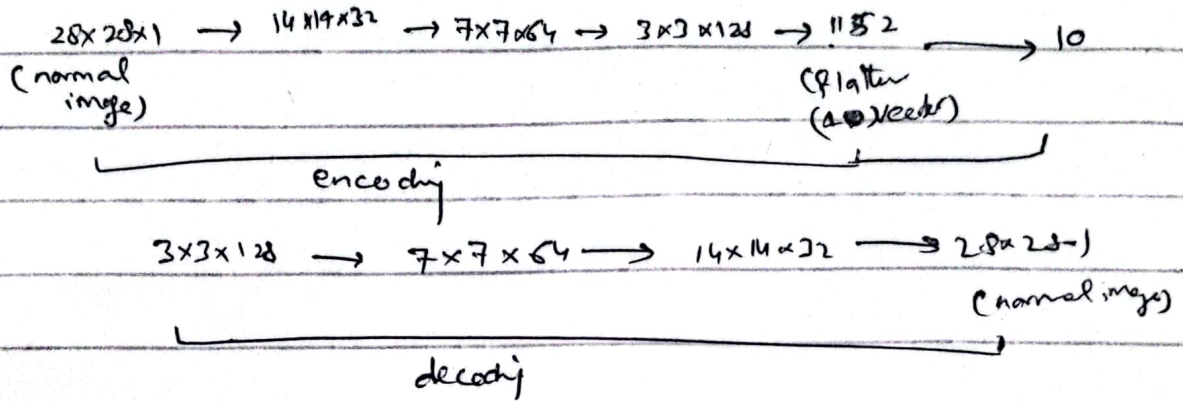 28×28×1 → 14×14×32 → 7×7×64 → 3×3×128 → 1152 → 10
(normal image)
(flatten
(1D vector)
encoding
3×3×128 → 7×7×64 → 14×14×32 → 28×28×1
(normal image)
decoding